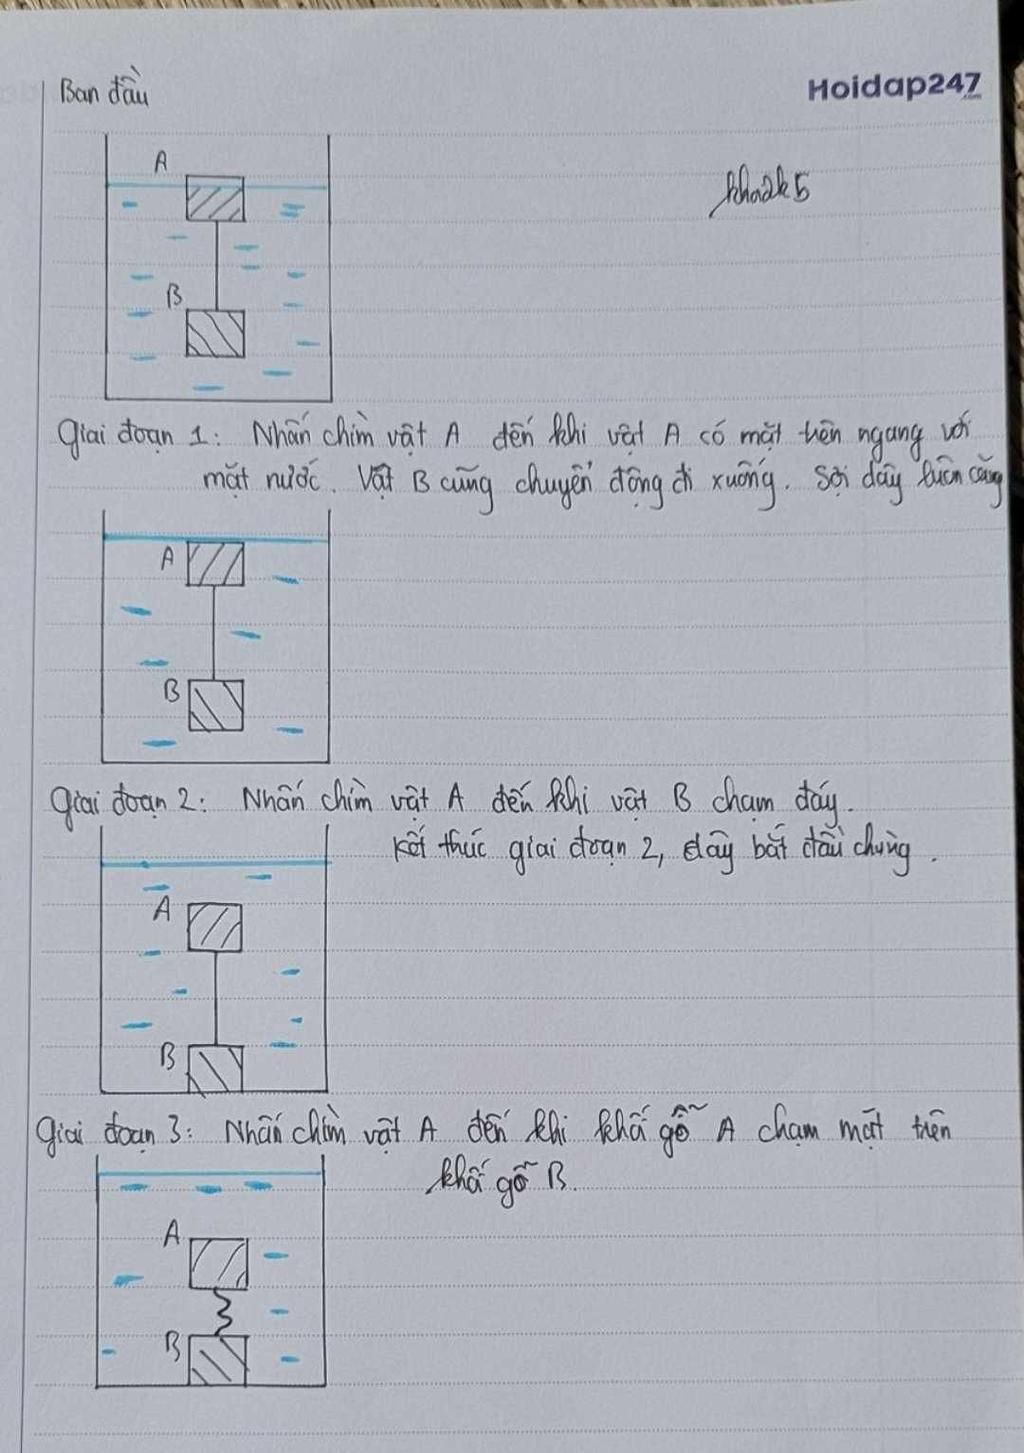 Ban đầu
Hoidap247
.com
khoa2k5
A
B
Giai đoạn 1: Nhấn chìm vật A đến khi vật A có mặt trên ngang với
mặt nước. Vật B cũng chuyển động đi xuống. Sợi dây luôn căng
A
B
Giai đoạn 2: Nhấn chìm vật A đến khi vật B chạm đáy.
Kết thúc giai đoạn 2, dây bắt đầu chùng.
A
B
Giai đoạn 3: Nhấn chìm vật A đến khi khối gỗ A chạm mặt trên
khối gỗ B.
A
B